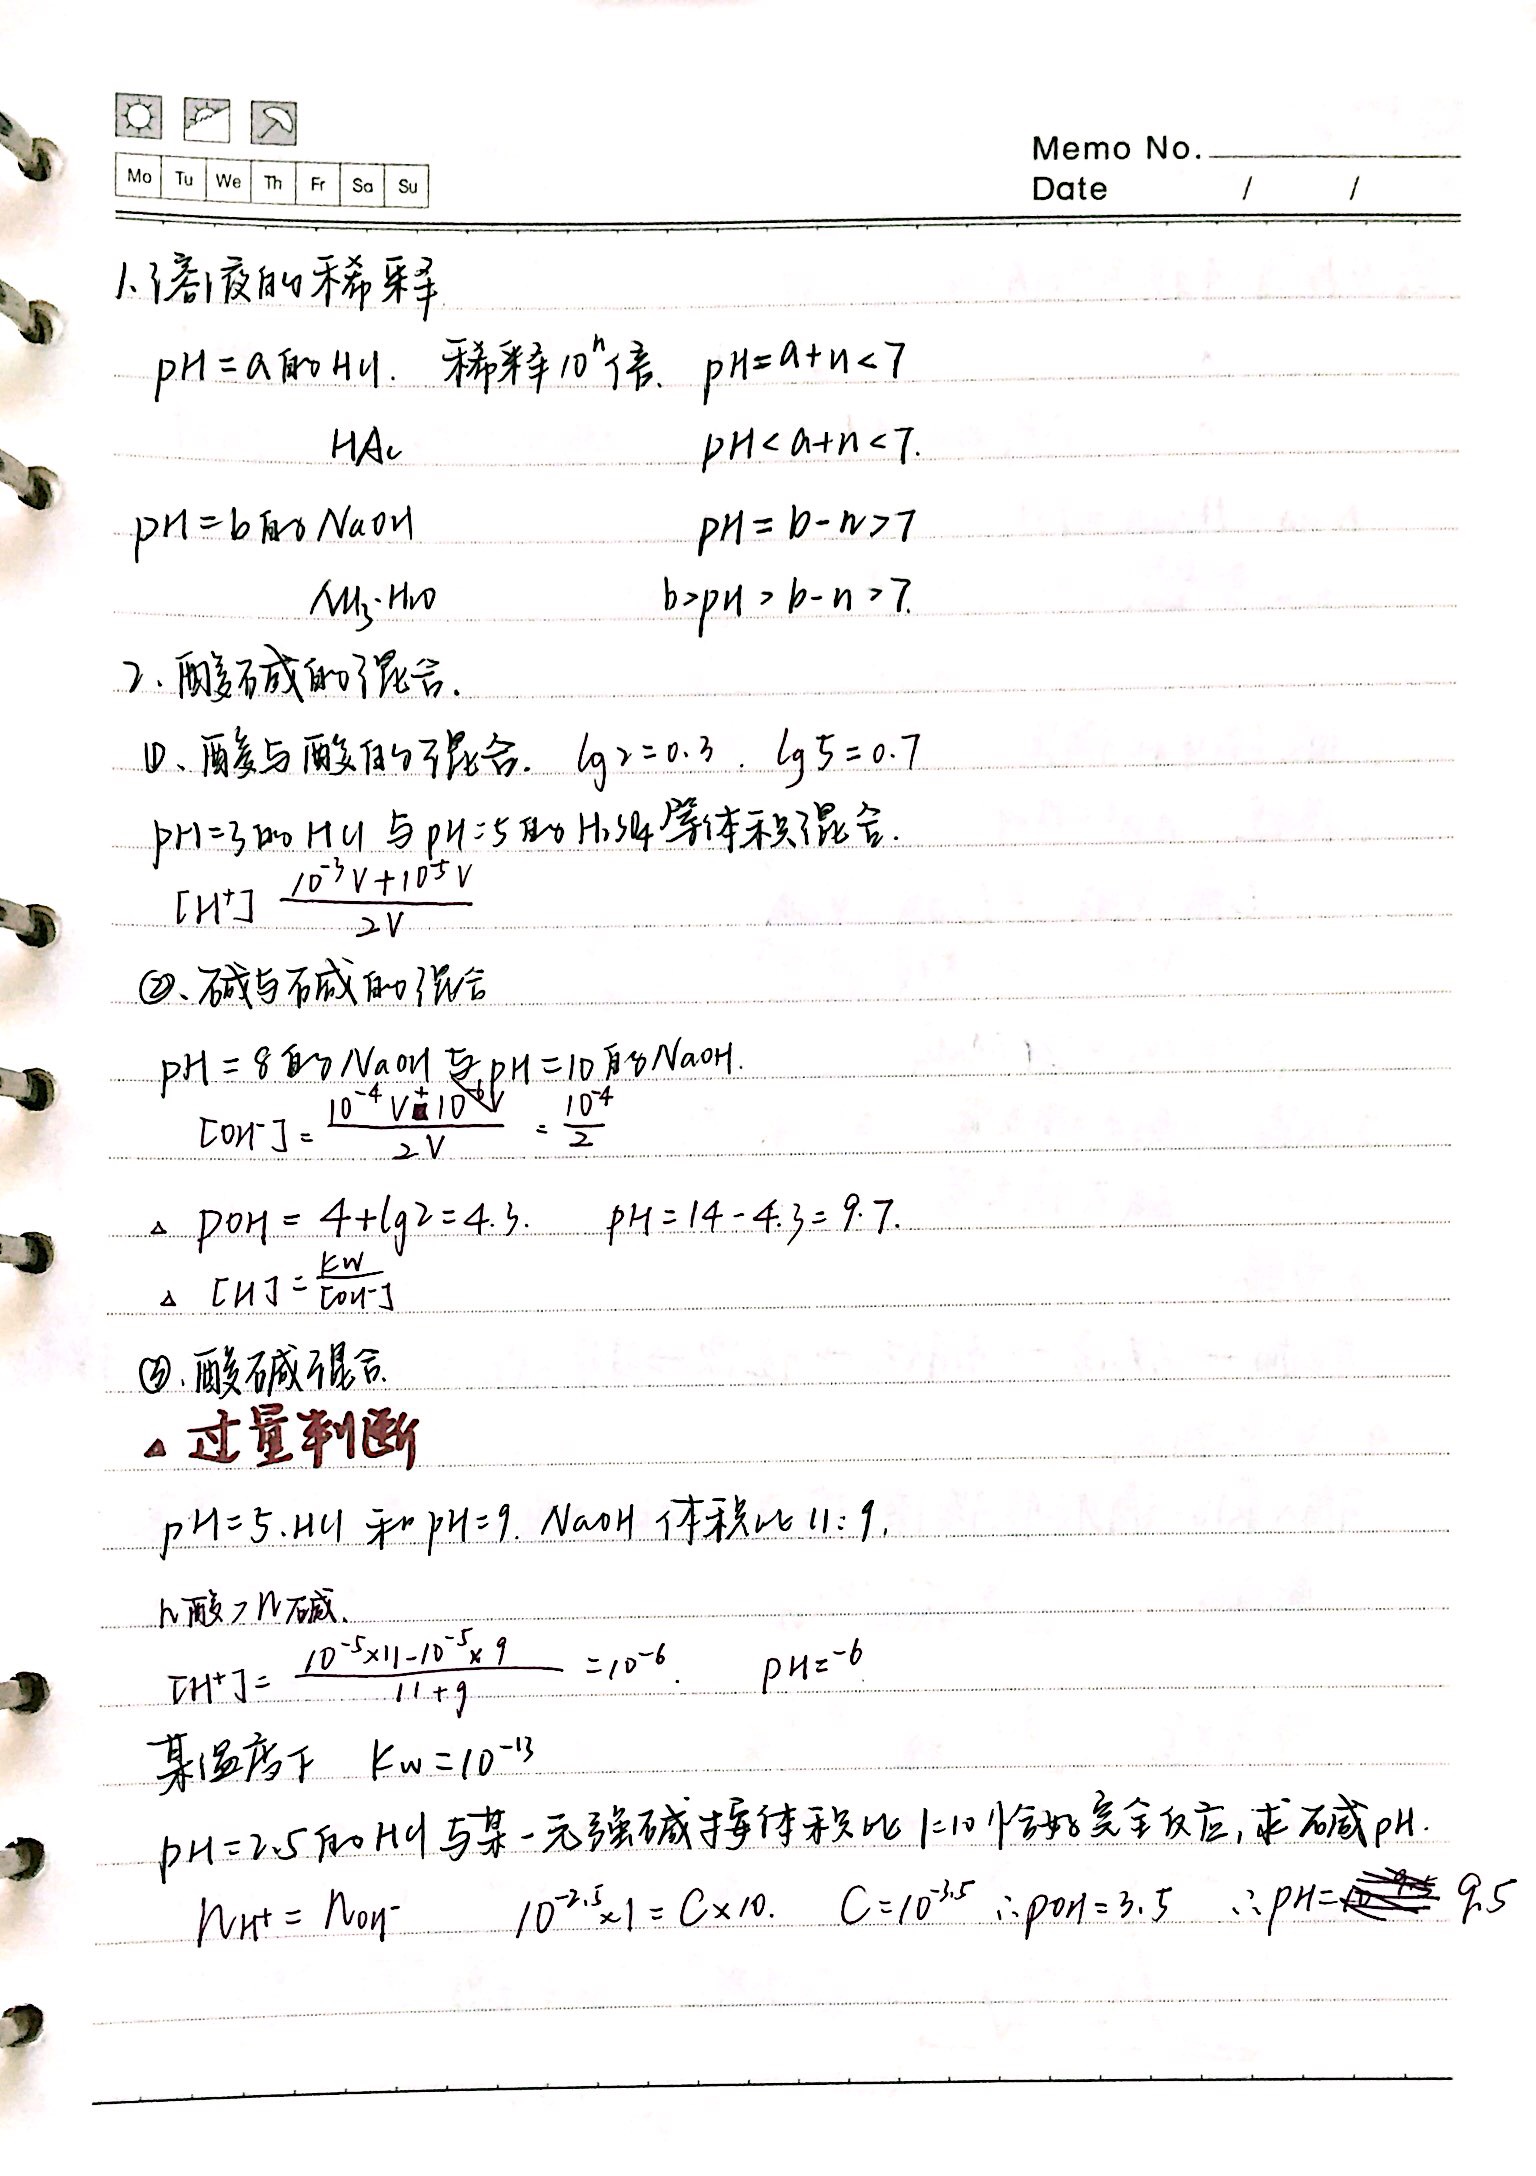 Mo Tu We Th Fr Sa Su
Memo No.
Date / /
1、溶液的稀释
pH=a的HCl. 稀释10ⁿ倍. pH=a+n<7
HAc pH<a+n<7.
pH=b的NaOH pH=b-n>7
NH₃·H₂O b>pH>b-n>7.
2、酸碱的混合.
①、酸与酸的混合. lg2=0.3. lg5=0.7
pH=3的HCl与pH=5的H₂SO₄等体积混合.
[H⁺] (10⁻³V+10⁻⁵V)/2V
②、碱与碱的混合
pH=8的NaOH与pH=10的NaOH.
[OH⁻]=(10⁻⁴V+10⁻⁶V)/2V=10⁻⁴/2
△ pOH=4+lg2=4.3. pH=14-4.3=9.7.
△ [H]=Kw/[OH⁻]
③.酸碱混合.
△过量判断
pH=5.HCl和pH=9.NaOH体积比11:9.
n酸>n碱.
[H⁺]=(10⁻⁵×11-10⁻⁵×9)/(11+9)=10⁻⁶. pH=-6
某温度下 Kw=10⁻¹³
pH=2.5的HCl与某一元强碱按体积比1:10恰好完全反应,求碱pH.
nH⁺=nOH⁻ 10⁻²·⁵×1=C×10. C=10⁻³·⁵ ∴pOH=3.5 ∴pH=9.5